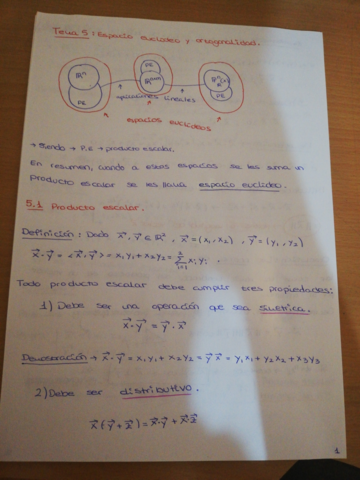 Tema 5: Espacio euclídeo y ortogonalidad.
ℝⁿ
P.E
P.E
ℝᵐˣⁿ
P.E
aplicaciones lineales
espacios euclídeos
→ Siendo → P.E → producto escalar.
En resumen, cuando a estos espacios se les suma un
producto escalar se les llama espacio euclídeo.
5.1 Producto escalar.
Definición: Dado x⃗, y⃗ ∈ ℝ², x⃗ = (x₁, x₂), y⃗ = (y₁, y₂)
x⃗·y⃗ = <x⃗, y⃗> = x₁y₁ + x₂y₂ = Σ xᵢyᵢ,
Todo producto escalar debe cumplir tres propiedades:
1) Debe ser una operación que sea simétrica.
x⃗·y⃗ = y⃗·x⃗
Demostración → x⃗·y⃗ = x₁y₁ + x₂y₂ = y⃗ x⃗ = y₁x₁ + y₂x₂ + x₃y₃
2) Debe ser distributivo.
x⃗(y⃗+z⃗) = x⃗·y⃗ + x⃗·z⃗
1